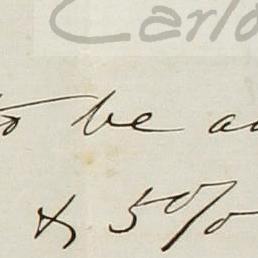 Carlo
to be a
& 5%